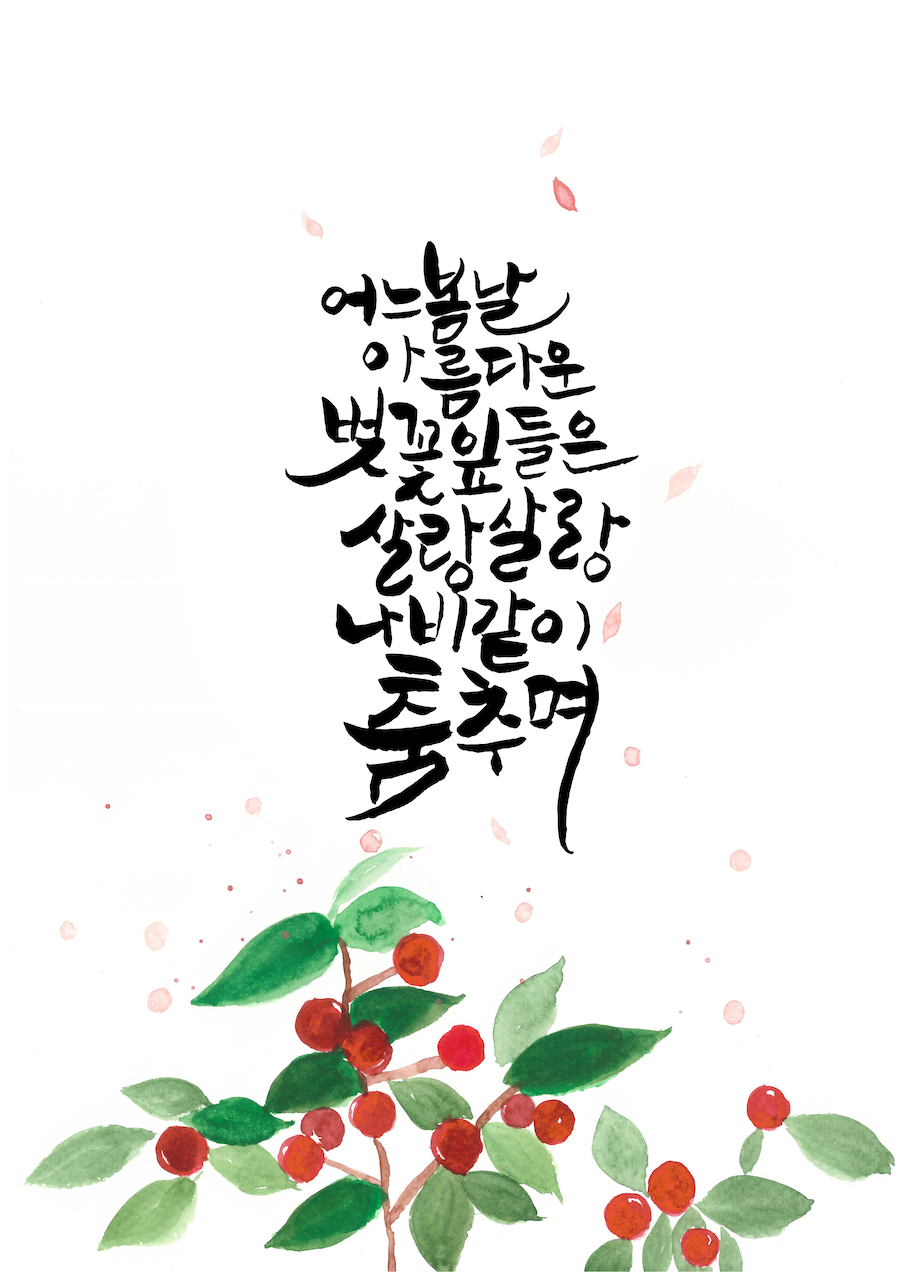 어느봄날
아름다운
벚꽃잎들은
살랑살랑
나비같이
춤추며